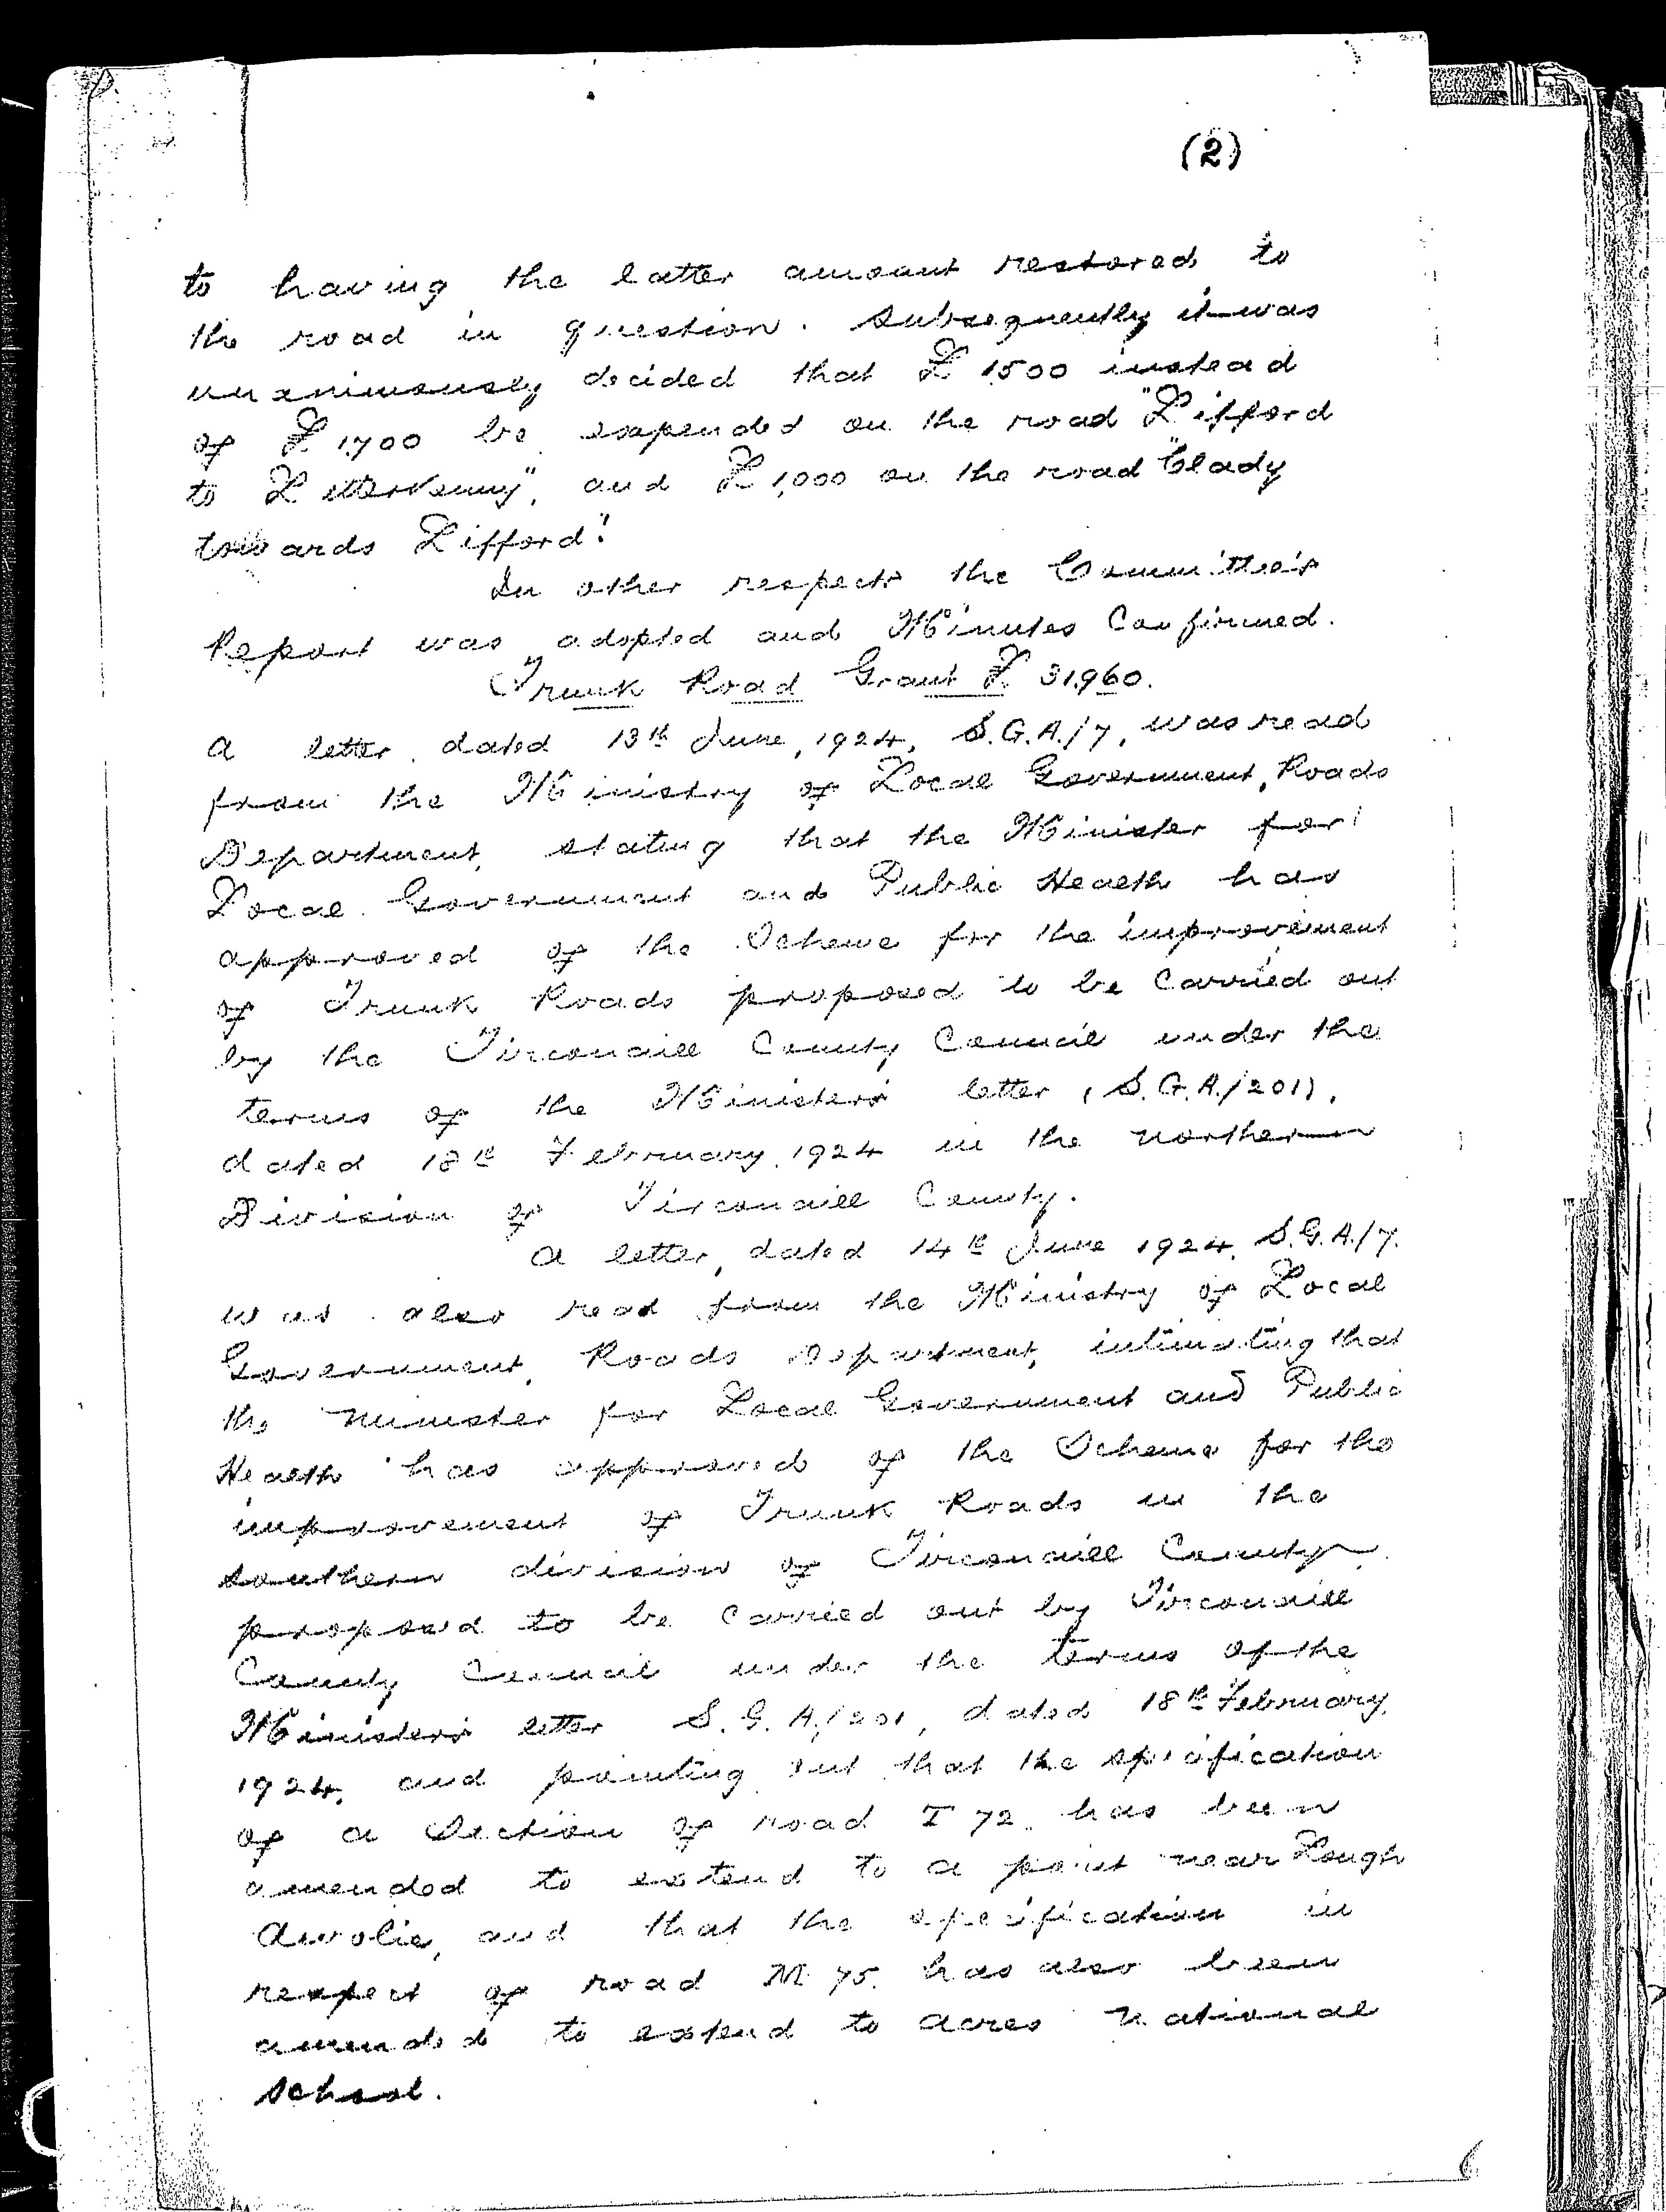 (2)
to having the latter amount restored to
the road in question. Subsequently it was
unanimously decided that £1500 instead
of £1700 be expended on the road "Lifford
to Letterkenny", and £1,000 on the road "Clady
towards Lifford".
In other respects the Committee's
Report was adopted and Minutes Confirmed.
Trunk Road Grant £31,960.
A letter dated 13th June, 1924, S.G.A./7, was read
from the Ministry of Local Government, Roads
Department, stating that the Minister for
Local Government and Public Health has
approved of the Scheme for the improvement
of Trunk Roads proposed to be Carried out
by the Tirconaill County Council under the
terms of the Minister's letter (S.G.A./201),
dated 18th February, 1924 in the northern
Division of Tirconaill County.
A letter, dated 14th June 1924, S.G.A./7.
was also read from the Ministry of Local
Government, Roads Department, intimating that
the Minister for Local Government and Public
Health has approved of the Scheme for the
improvement of Trunk Roads in the
southern division of Tirconaill County
proposed to be Carried out by Tirconaill
County Council under the terms of the
Minister's letter S.G.A./201, dated 18th February,
1924, and pointing out that the specification
of a Section of road T 72. has been
amended to extend to a point near Lough
Awolie, and that the specification in
respect of road M 75. has also been
amended to extend to acres national
school.